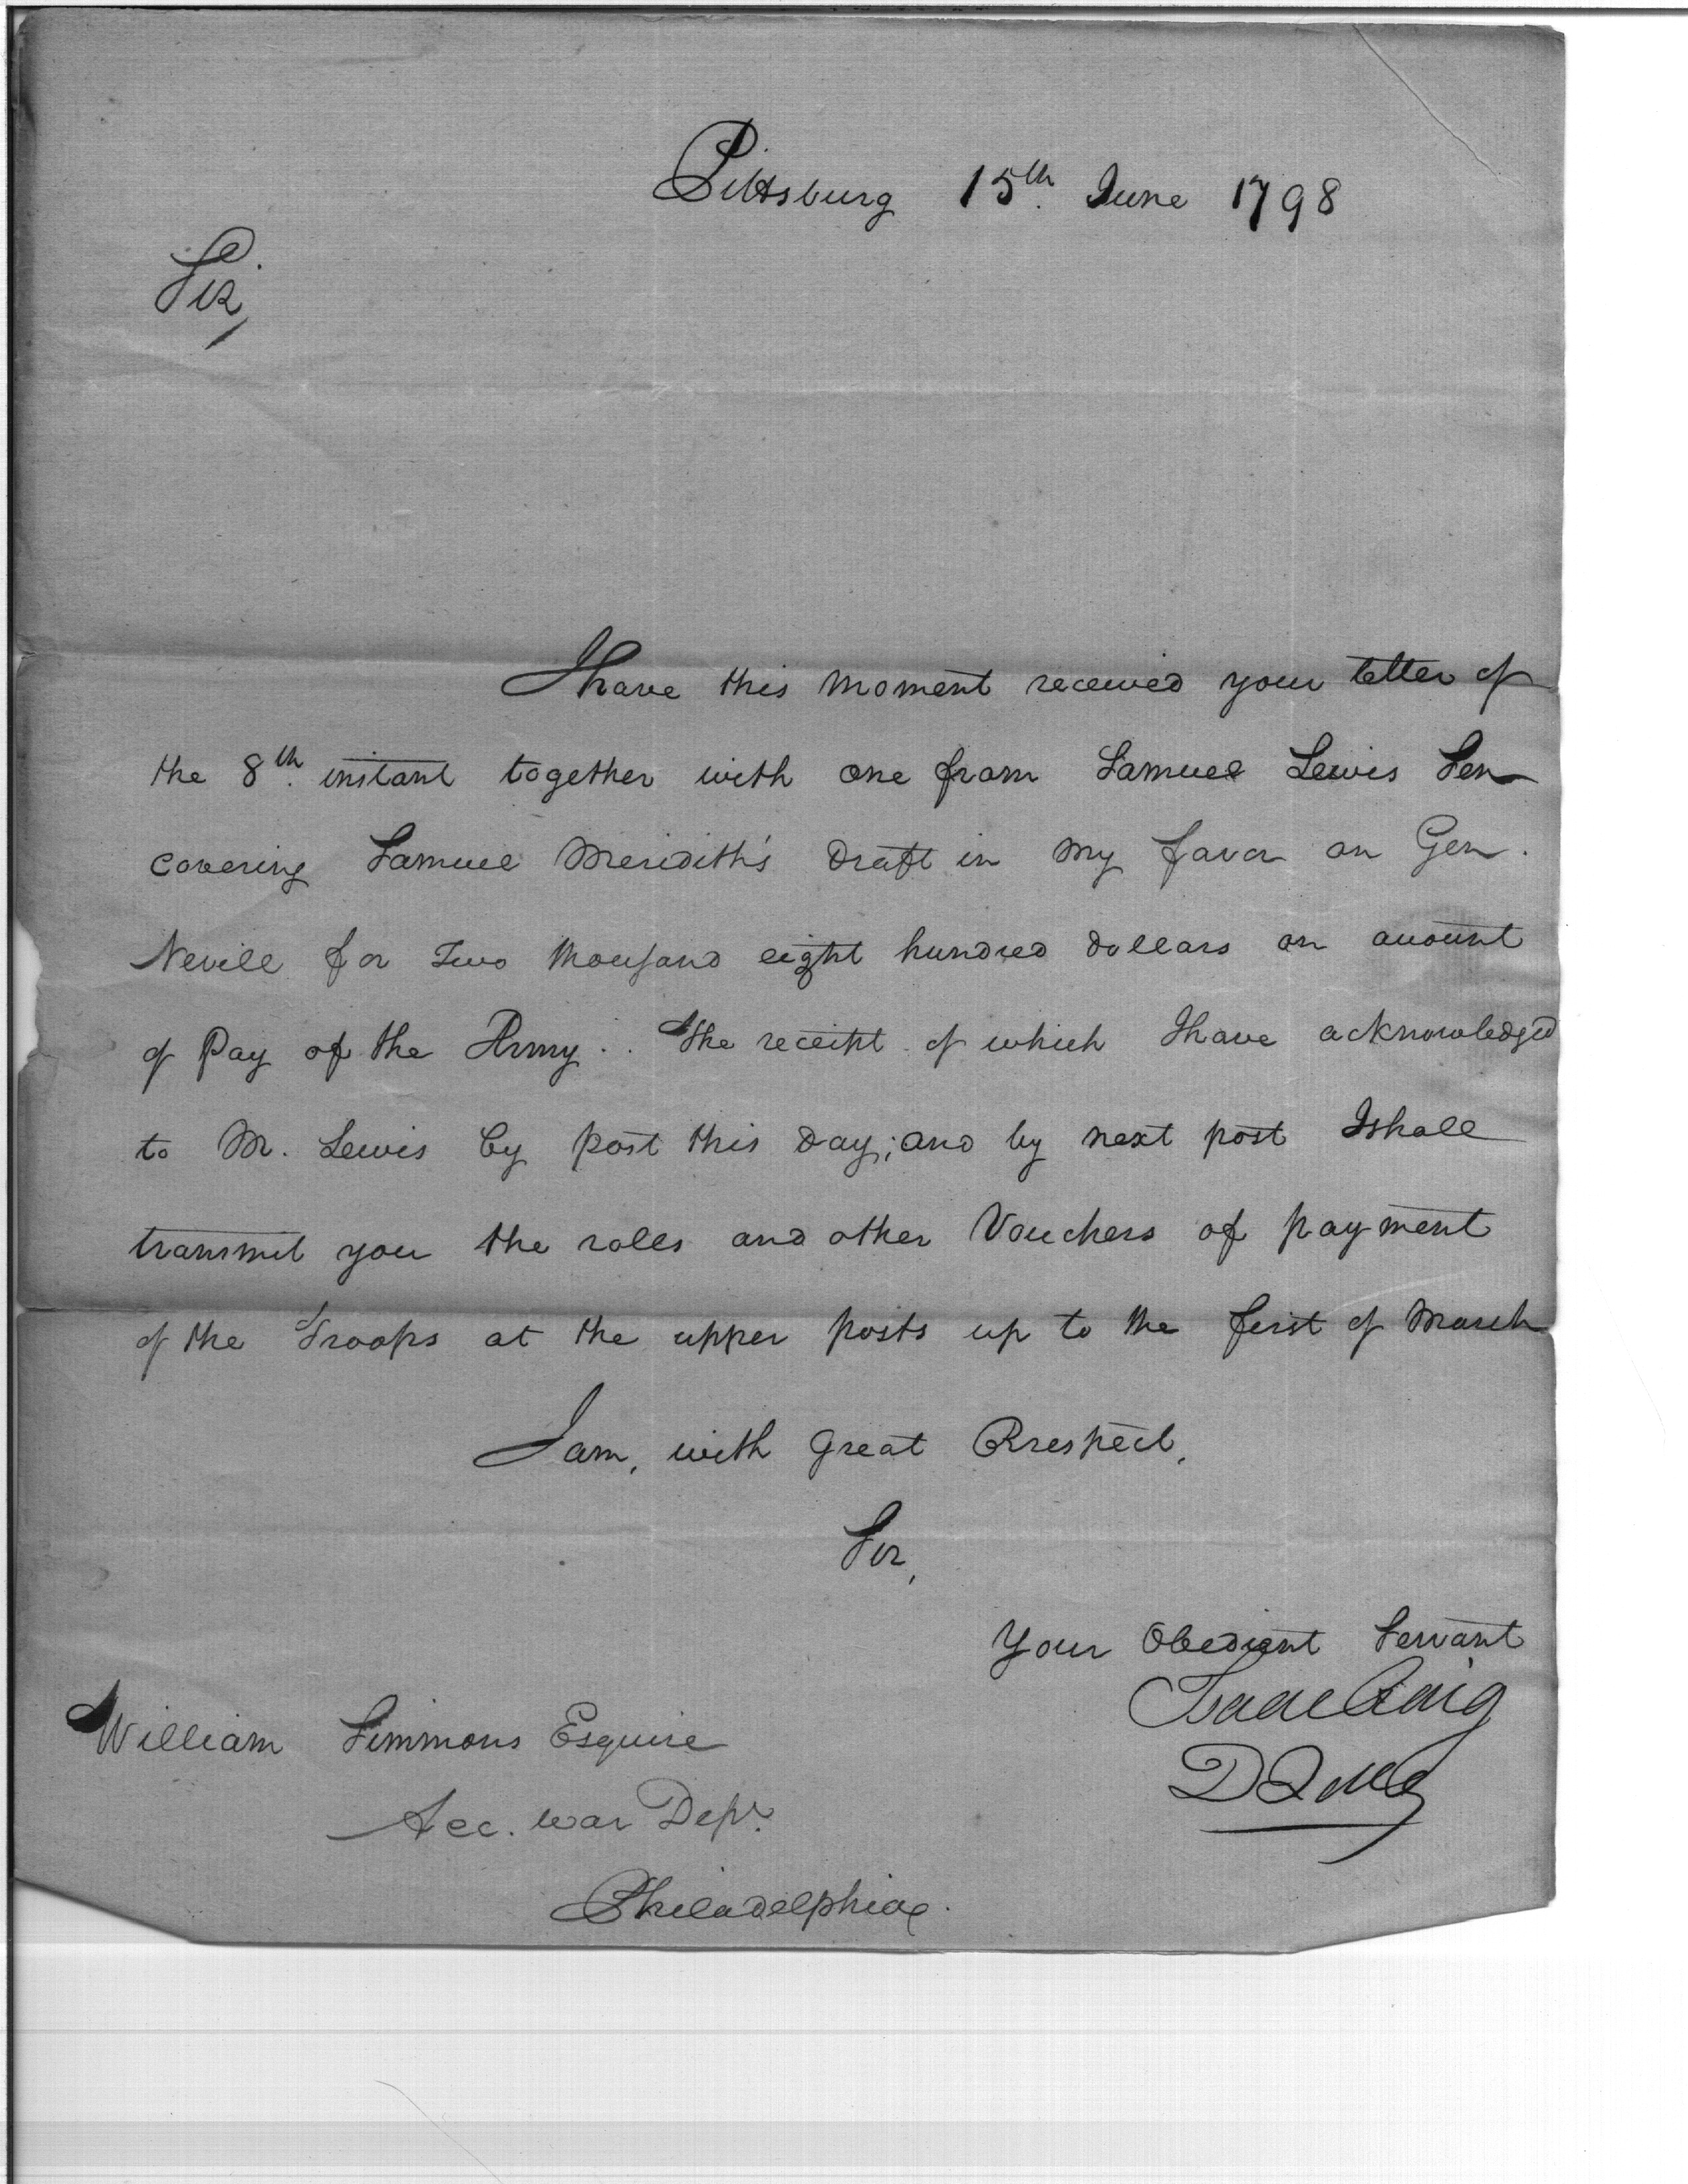 Pittsburg 15th. June 1798
Sir,
I have this moment received your letter of
the 8th. instant together with one from Samuel Lewis Sen
covering Samuel Meridith's draft in my favor on Gen.
Nevill for Two thousand eight hundred dollars on account
of Pay of the Army.. The receipt of which I have acknowledged
to M. Lewis by post this day; and by next post I shall
transmit you the rolls and other Vouchers of payment
of the Troops at the upper posts up to the first of March
I am, with great Rrespect,
Sir,
Your Obedient Servant
Isaac Craig
DQMG
William Simmons Esquire
Acc. War Dept.
Philadelphia.